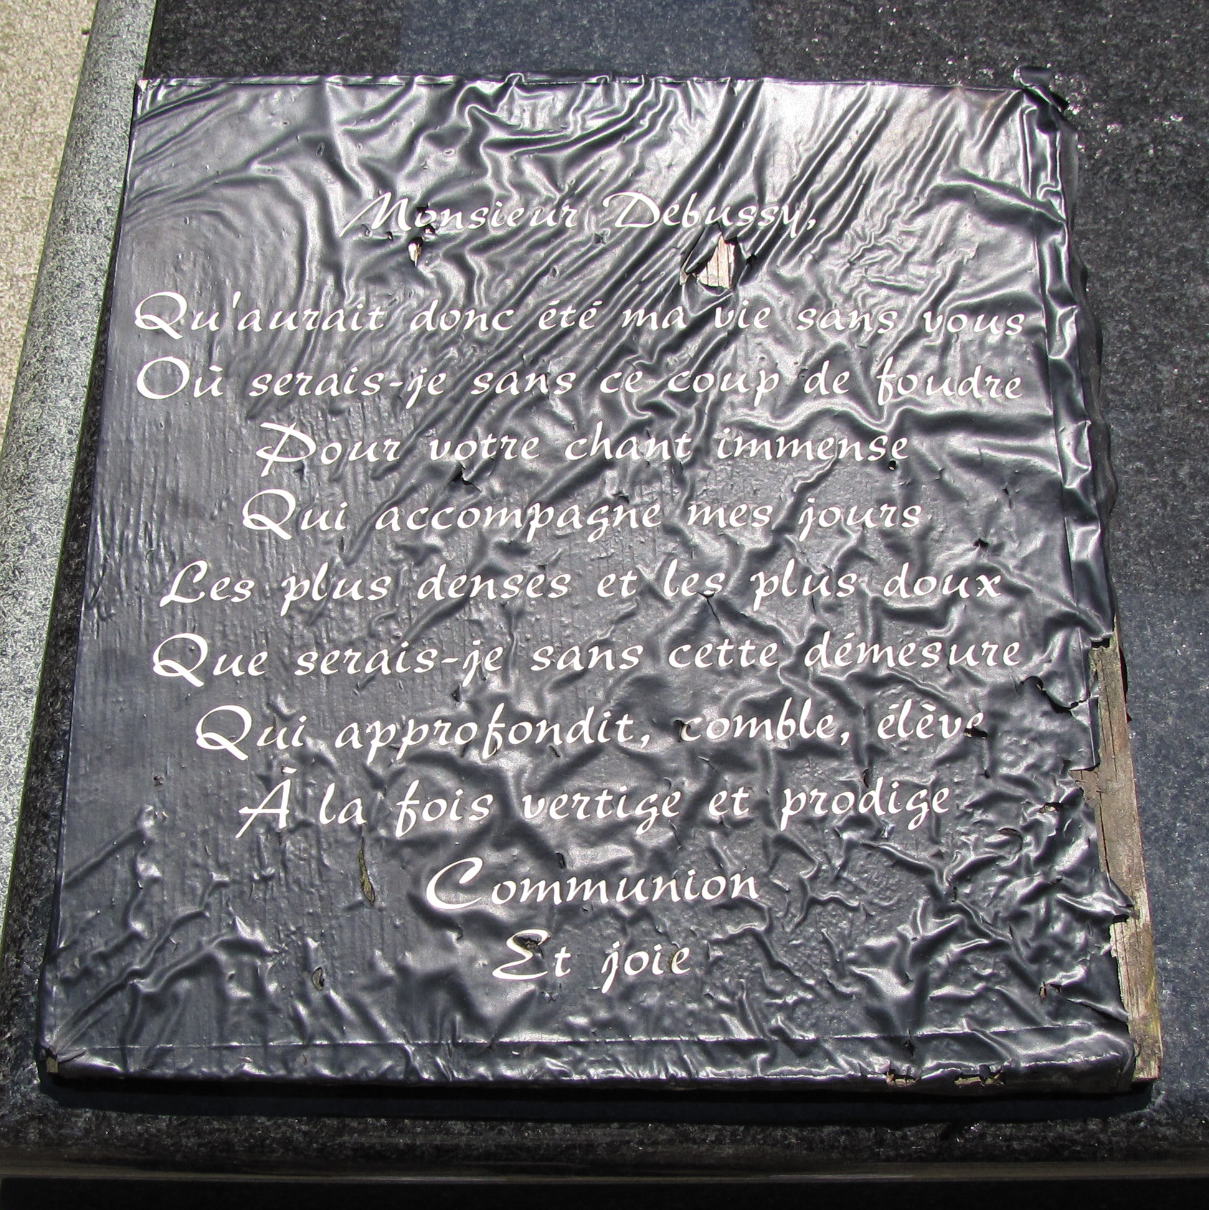 Monsieur Debussy,
Qu'aurait donc été ma vie sans vous
Où serais-je sans ce coup de foudre
Pour votre chant immense
Qui accompagne mes jours
Les plus denses et les plus doux
Que serais-je sans cette démesure
Qui approfondit, comble, élève
À la fois vertige et prodige
Communion
Et joie